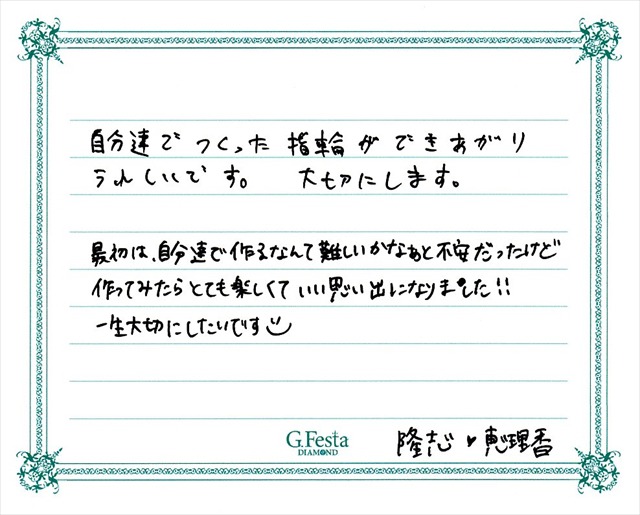 自分達でつくった指輪ができあがり
うれしいです。 大切にします。
最初は、自分達で作るなんて難しいかなぁと不安だったけど
作ってみたらとても楽しくていい思い出になりました!!
一生大切にしたいです
G.Festa
DIAMOND
隆志 ♥ 恵理香